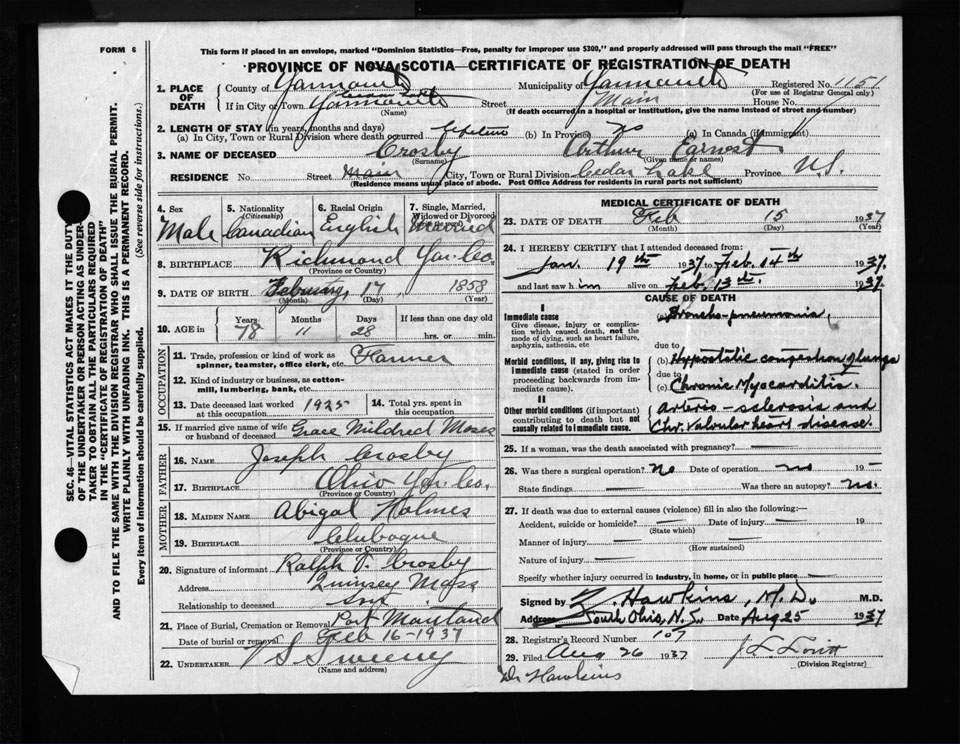 FORM 6
This form if placed in an envelope, marked "Dominion Statistics—Free, penalty for improper use $300," and properly addressed will pass through the mail "FREE"
PROVINCE OF NOVA SCOTIA—CERTIFICATE OF REGISTRATION OF DEATH
SEC. 46—VITAL STATISTICS ACT MAKES IT THE DUTY
OF THE UNDERTAKER OR PERSON ACTING AS UNDER-
TAKER TO OBTAIN ALL THE PARTICULARS REQUIRED
IN THE "CERTIFICATE OF REGISTRATION OF DEATH"
AND TO FILE THE SAME WITH THE DIVISION REGISTRAR WHO SHALL ISSUE THE BURIAL PERMIT.
WRITE PLAINLY WITH UNFADING INK. THIS IS A PERMANENT RECORD.
Every item of information should be carefully supplied. (See reverse side for instructions.)
1. PLACE OF DEATH County of Yarmouth Municipality of Yarmouth Registered No. 1151
(For use of Registrar General only)
If in City or Town Yarmouth Street Main House No.
(Name) (If death occurred in a hospital or institution, give the name instead of street and number)
2. LENGTH OF STAY (in years, months and days)
(a) In City, Town or Rural Division where death occurred (b) In Province (c) In Canada (if immigrant)
3. NAME OF DECEASED Crosby Arthur Earnest
(Surname) (Given name or names)
RESIDENCE No. Street Main City, Town or Rural Division Cedar Lake Province N.S.
(Residence means usual place of abode. Post Office Address for residents in rural parts not sufficient)
4. Sex Male
5. Nationality (Citizenship) Canadian
6. Racial Origin English
7. Single, Married, Widowed or Divorced Married
8. BIRTHPLACE Richmond Yar. Co.
(Province or Country)
9. DATE OF BIRTH February 17, 1858
(Month) (Day) (Year)
10. AGE in Years 78 Months 11 Days 28 If less than one day old
hrs. or min.
OCCUPATION
11. Trade, profession or kind of work as spinner, teamster, office clerk, etc. Farmer
12. Kind of industry or business, as cotton-mill, lumbering, bank, etc.
13. Date deceased last worked at this occupation 1925 14. Total yrs. spent in this occupation
15. If married give name of wife or husband of deceased Grace Mildred Moses
FATHER
16. NAME Joseph Crosby
17. BIRTHPLACE Ohio Yar. Co.
(Province or Country)
MOTHER
18. MAIDEN NAME Abigal Holmes
19. BIRTHPLACE Chebogue
(Province or Country)
20. Signature of informant Ralph T. Crosby
Address Quinsey Mass
Relationship to deceased son
21. Place of Burial, Cremation or Removal Port Maitland
Date of burial or removal Feb 16 - 1937
22. UNDERTAKER V S Sweeny
(Name and address)
MEDICAL CERTIFICATE OF DEATH
23. DATE OF DEATH Feb 15 1937
(Month) (Day) (Year)
24. I HEREBY CERTIFY that I attended deceased from:
Jan. 19th 1937 to Feb. 14th 1937.
and last saw him alive on Feb. 13th. 1937.
CAUSE OF DEATH
I
Immediate cause (a) Broncho-pneumonia,
Give disease, injury or complication which caused death, not the mode of dying, such as heart failure, asphyxia, asthenia, etc
due to
Morbid conditions, if any, giving rise to immediate cause (stated in order proceeding backwards from immediate cause). (b) Hypostatic congestion of lungs
due to
(c) Chronic Myocarditis.
II
Other morbid conditions (if important) contributing to death but not causally related to immediate cause. Arterio-sclerosis and
Chr. Valvular heart disease.
25. If a woman, was the death associated with pregnancy? —
26. Was there a surgical operation? No Date of operation no 19 —
State findings — Was there an autopsy? No.
27. If death was due to external causes (violence) fill in also the following:—
Accident, suicide or homicide? — Date of injury — 19
(State which)
Manner of injury — (How sustained)
Nature of injury —
Specify whether injury occurred in industry, in home, or in public place —
Signed by Z. Hawkins, M.D. M.D.
Address South Ohio, N.S. Date Aug 25 1937
28. Registrar's Record Number 107
29. Filed Aug 26 1937
(Division Registrar)
Dr Hawkins